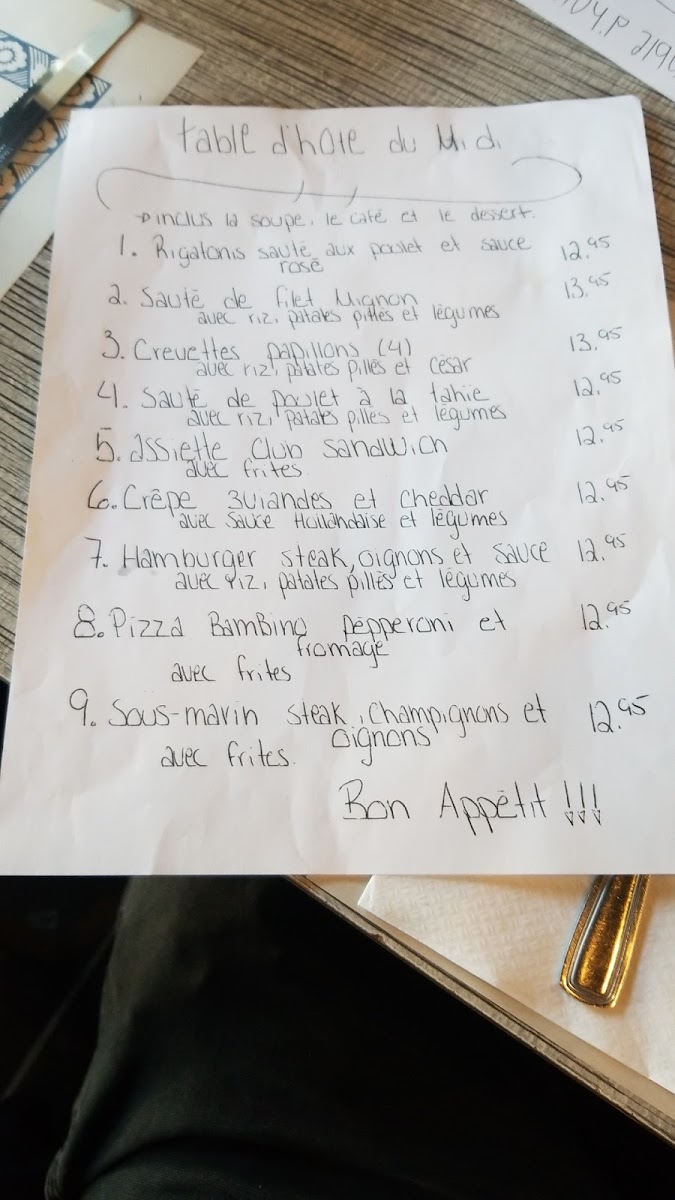 table d'hote du Midi
→ inclus la soupe, le café et le dessert.
1. Rigatonis sauté aux poulet et sauce 12.95
rosé
2. Sauté de filet Mignon 13.95
avec riz, patates pillés et légumes
3. Creuettes papillons (4) 13.95
avec riz, patates pillés et césar
4. Sauté de poulet à la tahie 12.95
avec riz, patates pillés et légumes
5. assiette Club sandwich 12.95
avec frites
6. Crêpe 3 viandes et cheddar 12.95
avec sauce Hollandaise et légumes
7. Hamburger steak, oignons et sauce 12.95
avec riz, patates pillés et légumes
8. Pizza Bambino pepperoni et 12.95
fromage
avec frites
9. Sous-marin steak, champignons et 12.95
oignons
avec frites.
Bon Appétit !!!